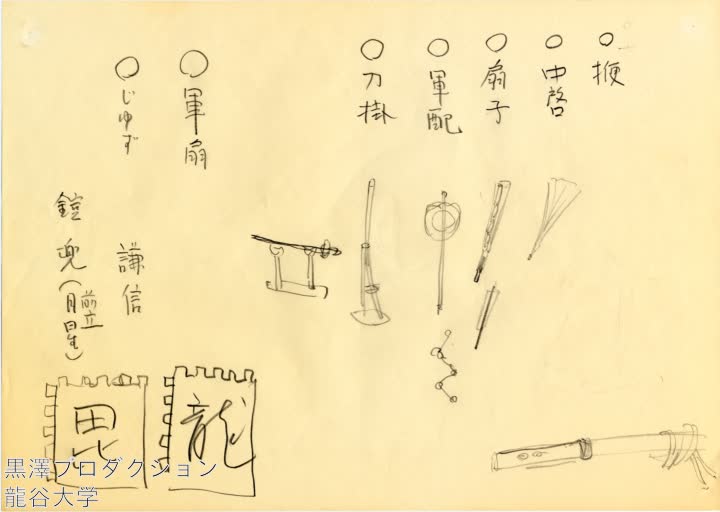 鞭
中啓
扇子
軍配
刀掛
軍扇
じゅず
謙信
鎧
兜(前立
月日星)
龍
毘
黒澤プロダクション
龍谷大学